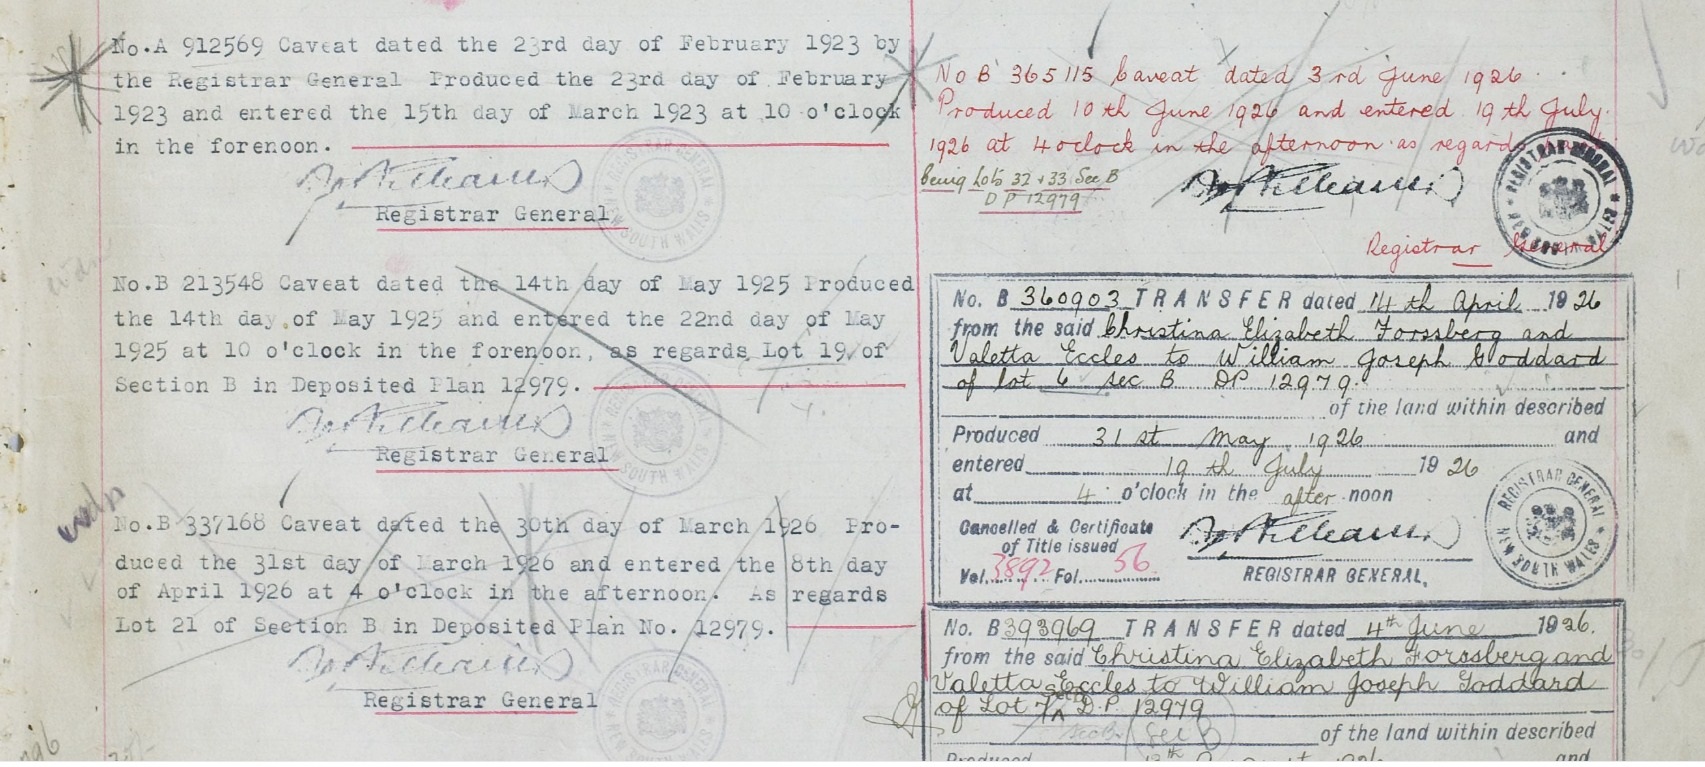 No.A 912569 Caveat dated the 23rd day of February 1923 by
the Registrar General Produced the 23rd day of February
1923 and entered the 15th day of March 1923 at 10 o'clock
in the forenoon.
Registrar General
REGISTRAR GENERAL
NEW SOUTH WALES
No.B 213548 Caveat dated the 14th day of May 1925 Produced
the 14th day of May 1925 and entered the 22nd day of May
1925 at 10 o'clock in the forenoon, as regards Lot 19 of
Section B in Deposited Plan 12979.
Registrar General
REGISTRAR GENERAL
NEW SOUTH WALES
No.B 337168 Caveat dated the 30th day of March 1926 Pro-
duced the 31st day of March 1926 and entered the 8th day
of April 1926 at 4 o'clock in the afternoon. As regards
Lot 21 of Section B in Deposited Plan No. 12979.
Registrar General
REGISTRAR GENERAL
NEW SOUTH WALES
No B 365115 Caveat dated 3rd June 1926
Produced 10th June 1926 and entered 19th July
1926 at 4 oclock in the afternoon as regards
being Lots 32 + 33 Sec B
D P 12979
REGISTRAR GENERAL
NEW SOUTH WALES
Registrar General
No. B 360903 TRANSFER dated 14th April 1926
from the said Christina Elizabeth Forssberg and
Valetta Eccles to William Joseph Goddard
of lot 6 sec B DP 12979.
of the land within described
Produced 31st May 1926 and
entered 19th July 1926
at 4 o'clock in the afternoon
Cancelled & Certificate
of Title issued
Vol. 3892 Fol. 56
REGISTRAR GENERAL,
REGISTRAR GENERAL
NEW SOUTH WALES
No. B393969 TRANSFER dated 4th June 1926.
from the said Christina Elizabeth Forssberg and
Valetta Eccles to William Joseph Goddard
of Lot 7 D.P. 12979
Sec B
of the land within described
Produced 1926 and